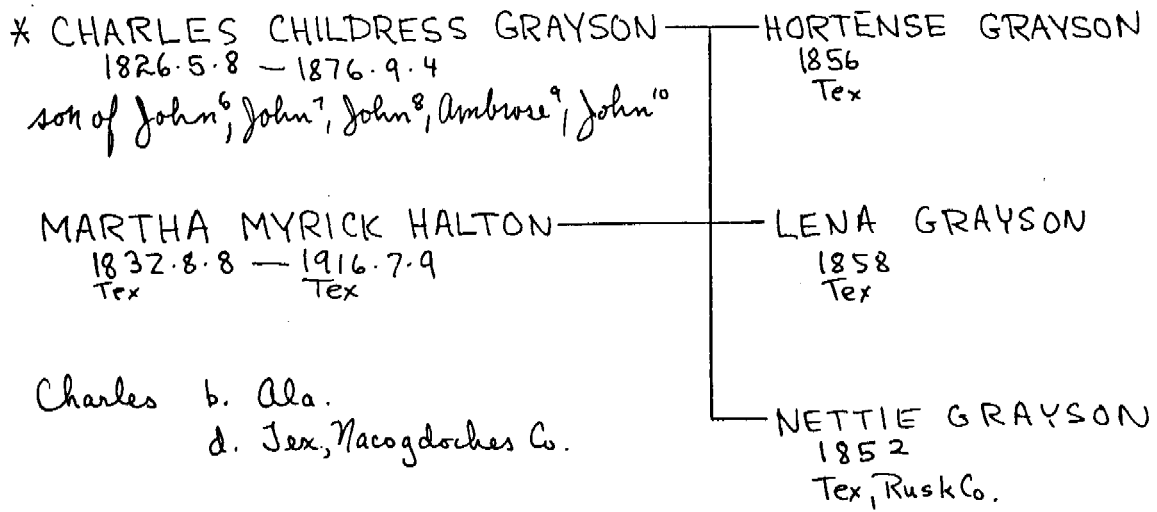 * CHARLES CHILDRESS GRAYSON
1826.5.8 — 1876.9.4
son of John⁶, John⁷, John⁸, Ambrose⁹, John¹⁰
MARTHA MYRICK HALTON
1832.8.8 — 1916.7.9
Tex Tex
Charles b. Ala.
d. Tex, Nacogdoches Co.
HORTENSE GRAYSON
1856
Tex
LENA GRAYSON
1858
Tex
NETTIE GRAYSON
1852
Tex, Rusk Co.